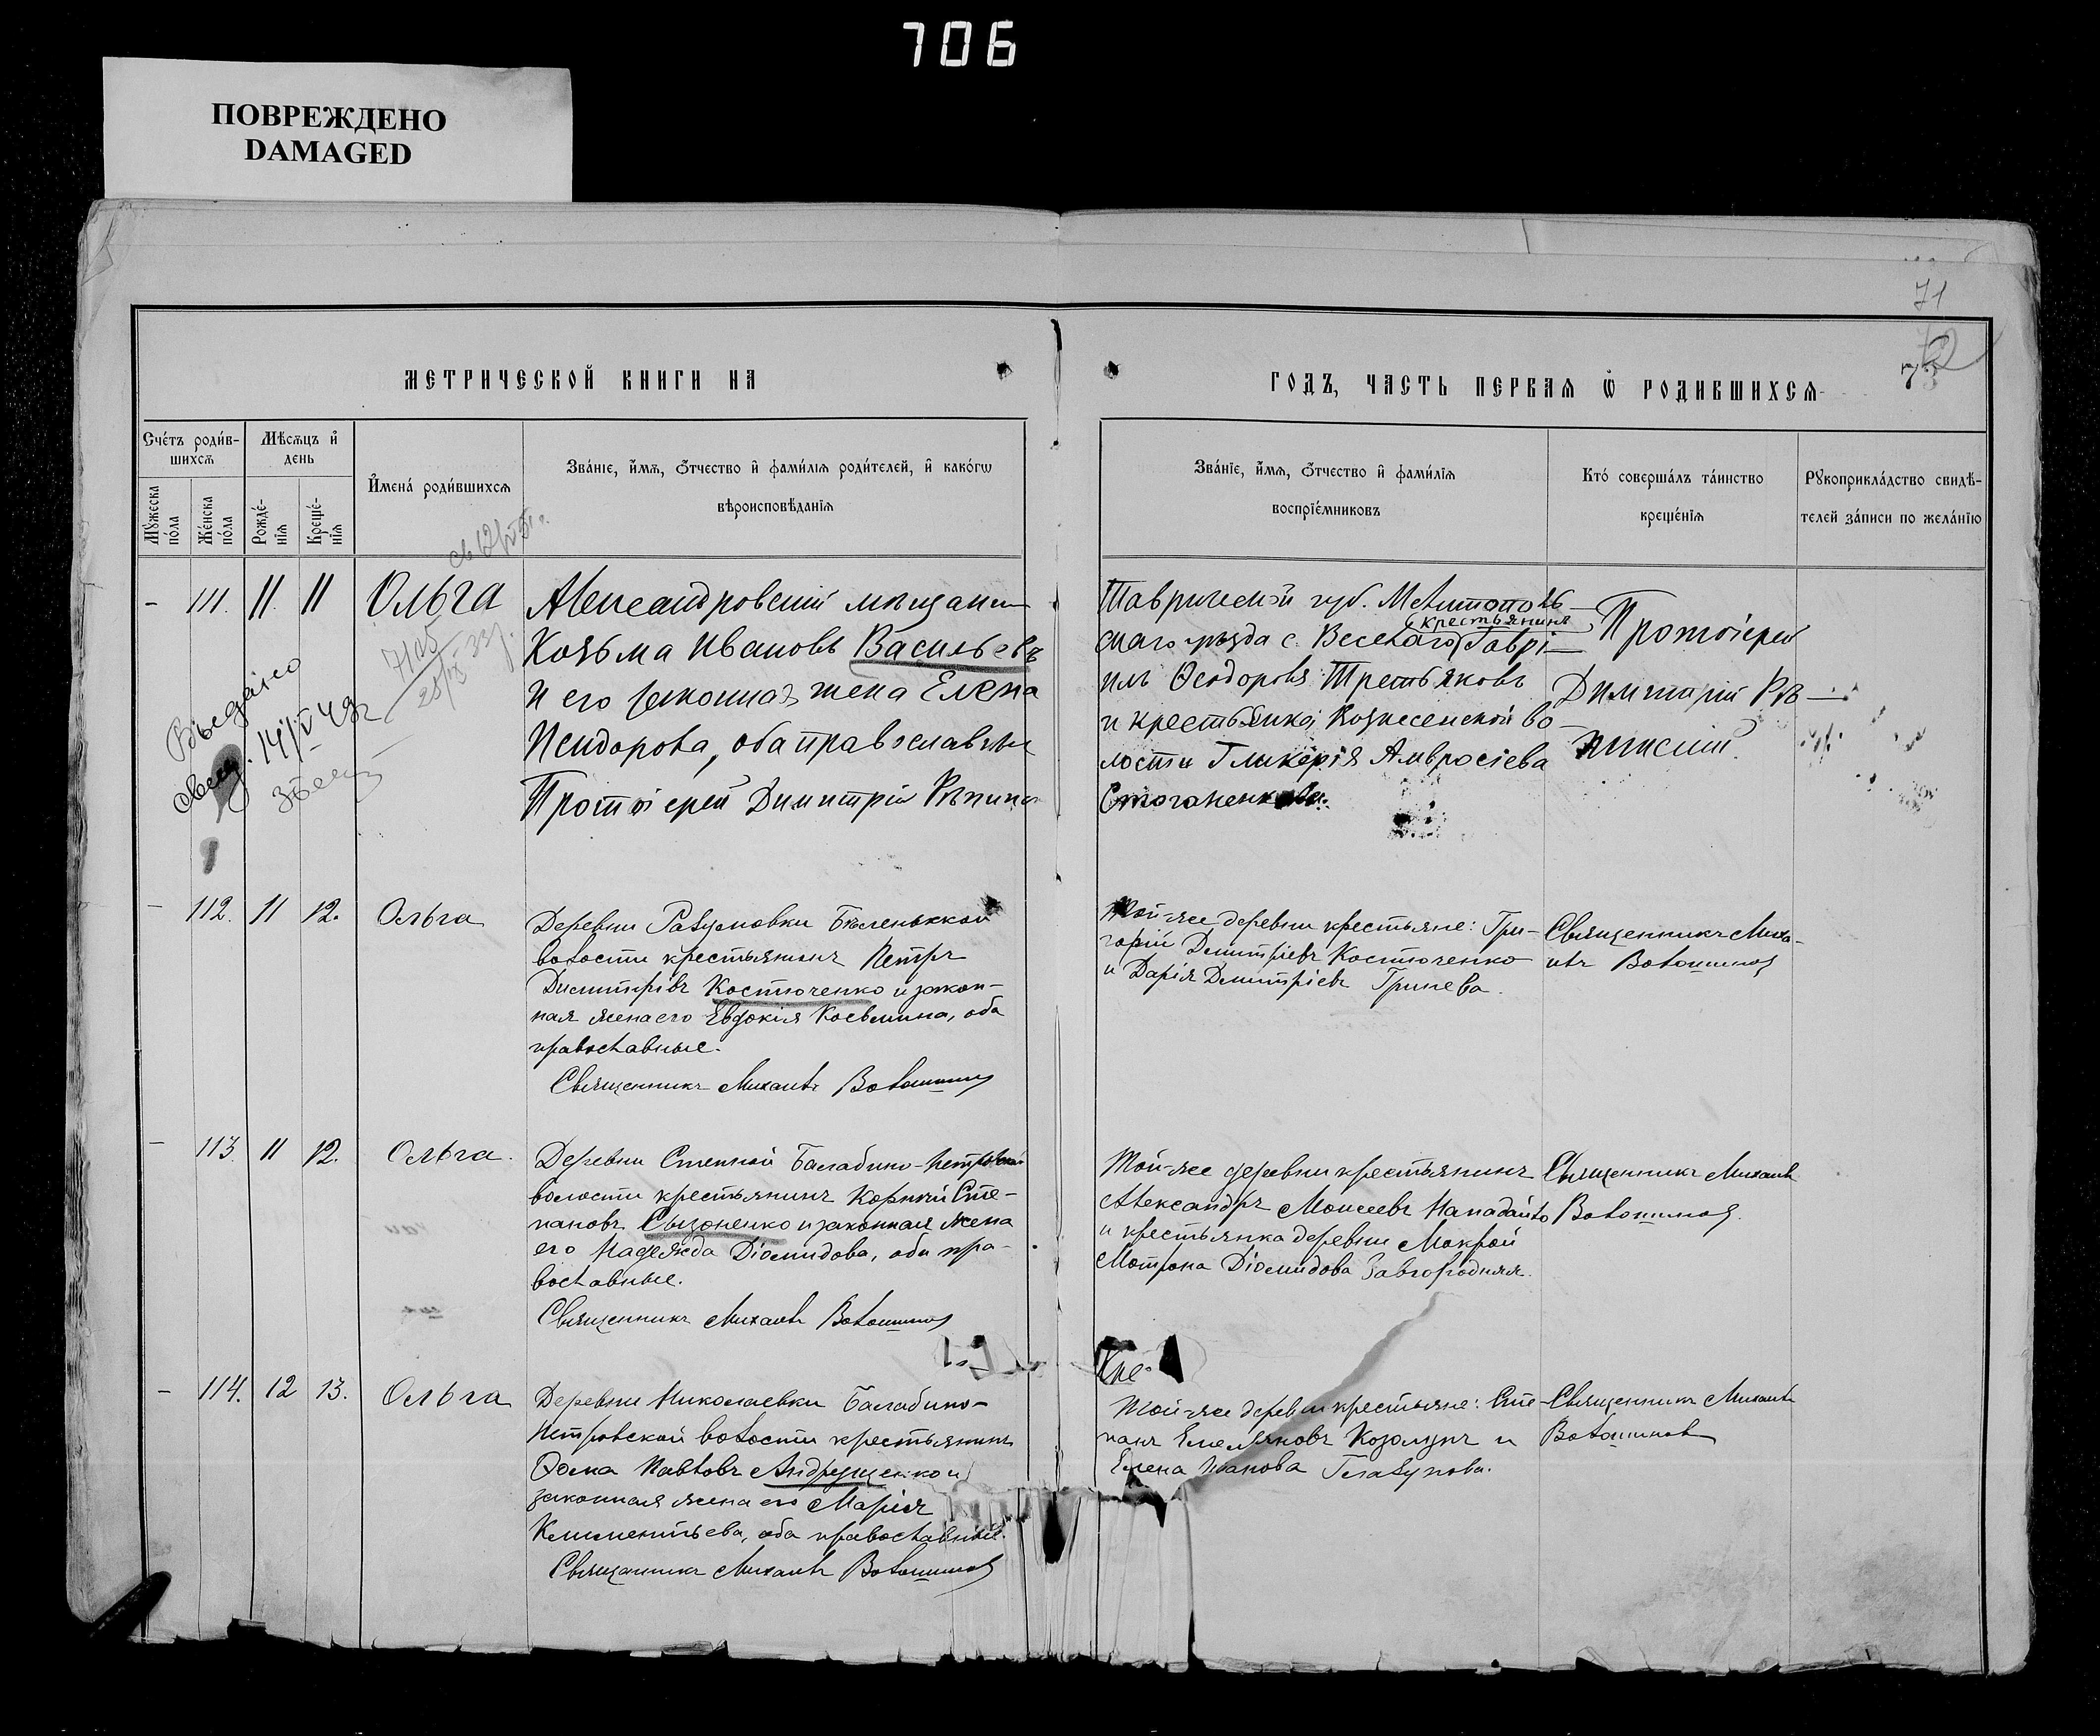 706
ПОВРЕЖДЕНО
DAMAGED
71
МЕТРИЧЕСКОЙ КНИГИ НА
ГОДЪ, ЧАСТЬ ПЕРВАЯ Ѡ РОДИВШИХСЯ
Счётъ роди́вшихсѧ
Мѣсѧцъ и҆ день
И҆мена́ роди́вшихсѧ
Зва́нїе, и҆́мѧ, ѻ҆́тчество и҆ фами́лїѧ роди́телей, и҆ како́гѡ
вѣроисповѣ́данїѧ
Мꙋ́жеска по́ла
Же́нска по́ла
Рожде́нїѧ
Креще́нїѧ
Зва́нїе, и҆́мѧ, ѻ҆́тчество и҆ фами́лїѧ
воспрїе́мниковъ
Кто̀ соверша́лъ та́инство
креще́нїѧ
Рꙋкоприкла́дство свидѣ́-
телей за́писи по жела́нїю
- 111. 11. 11 Ольга
Александровский мѣщанин
Козьма Ивановъ Васильевъ
и его законная жена Елена
Исидорова, оба православны
Протоіерей Димитрій Рѣпнин
Таврической губ. Мелитополь-
скаго уѣзда с. Веселаго (крестьянинъ) Гаврі-
илъ Ѳеодоровъ Третьяковъ
и крестьянка Вознесенской во-
лости Гликерія Амвросіева
Протоіерей
Димитрій Рѣ-
Выдано
свид. 14/V 49г
- 112. 11 12. Ольга
Деревни Разумовки Бѣленьккой
волости крестьянинъ Петръ
Димитріевъ Костюченко и закон-
ная жена его Евдокія Косьмина, оба
православные.
Священникъ Михаилъ Волошинов
Той-же деревни крестьяне: Гри-
горій Димитріевъ Костюченко
и Дарія Димитріева Гринева.
Священникъ Миха-
илъ Волошинов
- 113 11 12. Ольга.
Деревни Степной Балабино-Петровской
волости крестьянинъ Корній Сте-
пановъ Сызоненко и законная жена
его Надежда Діомидова, оба пра-
вославные.
Священникъ Михаилъ Волошинов
Той-же деревни крестьянинъ
Александръ Моисеевъ Нападайло
и крестьянка деревни Мокрой
Мотрона Діомидова Завгородняя.
Священникъ Михаилъ
Волошинов.
- 114. 12 13. Ольга
Деревни Николаевки Балабино-
Петровской волости крестьянинъ
Ѳома Павловъ Андрущенко и
законная жена его Марія
Климентьева, оба православные.
Священникъ Михаилъ Волошинов
Той-же деревни крестьяне: Сте-
панъ Емельяновъ Козолупъ и
Елена Иванова Глазунова.
Священникъ Михаилъ
Волошинов